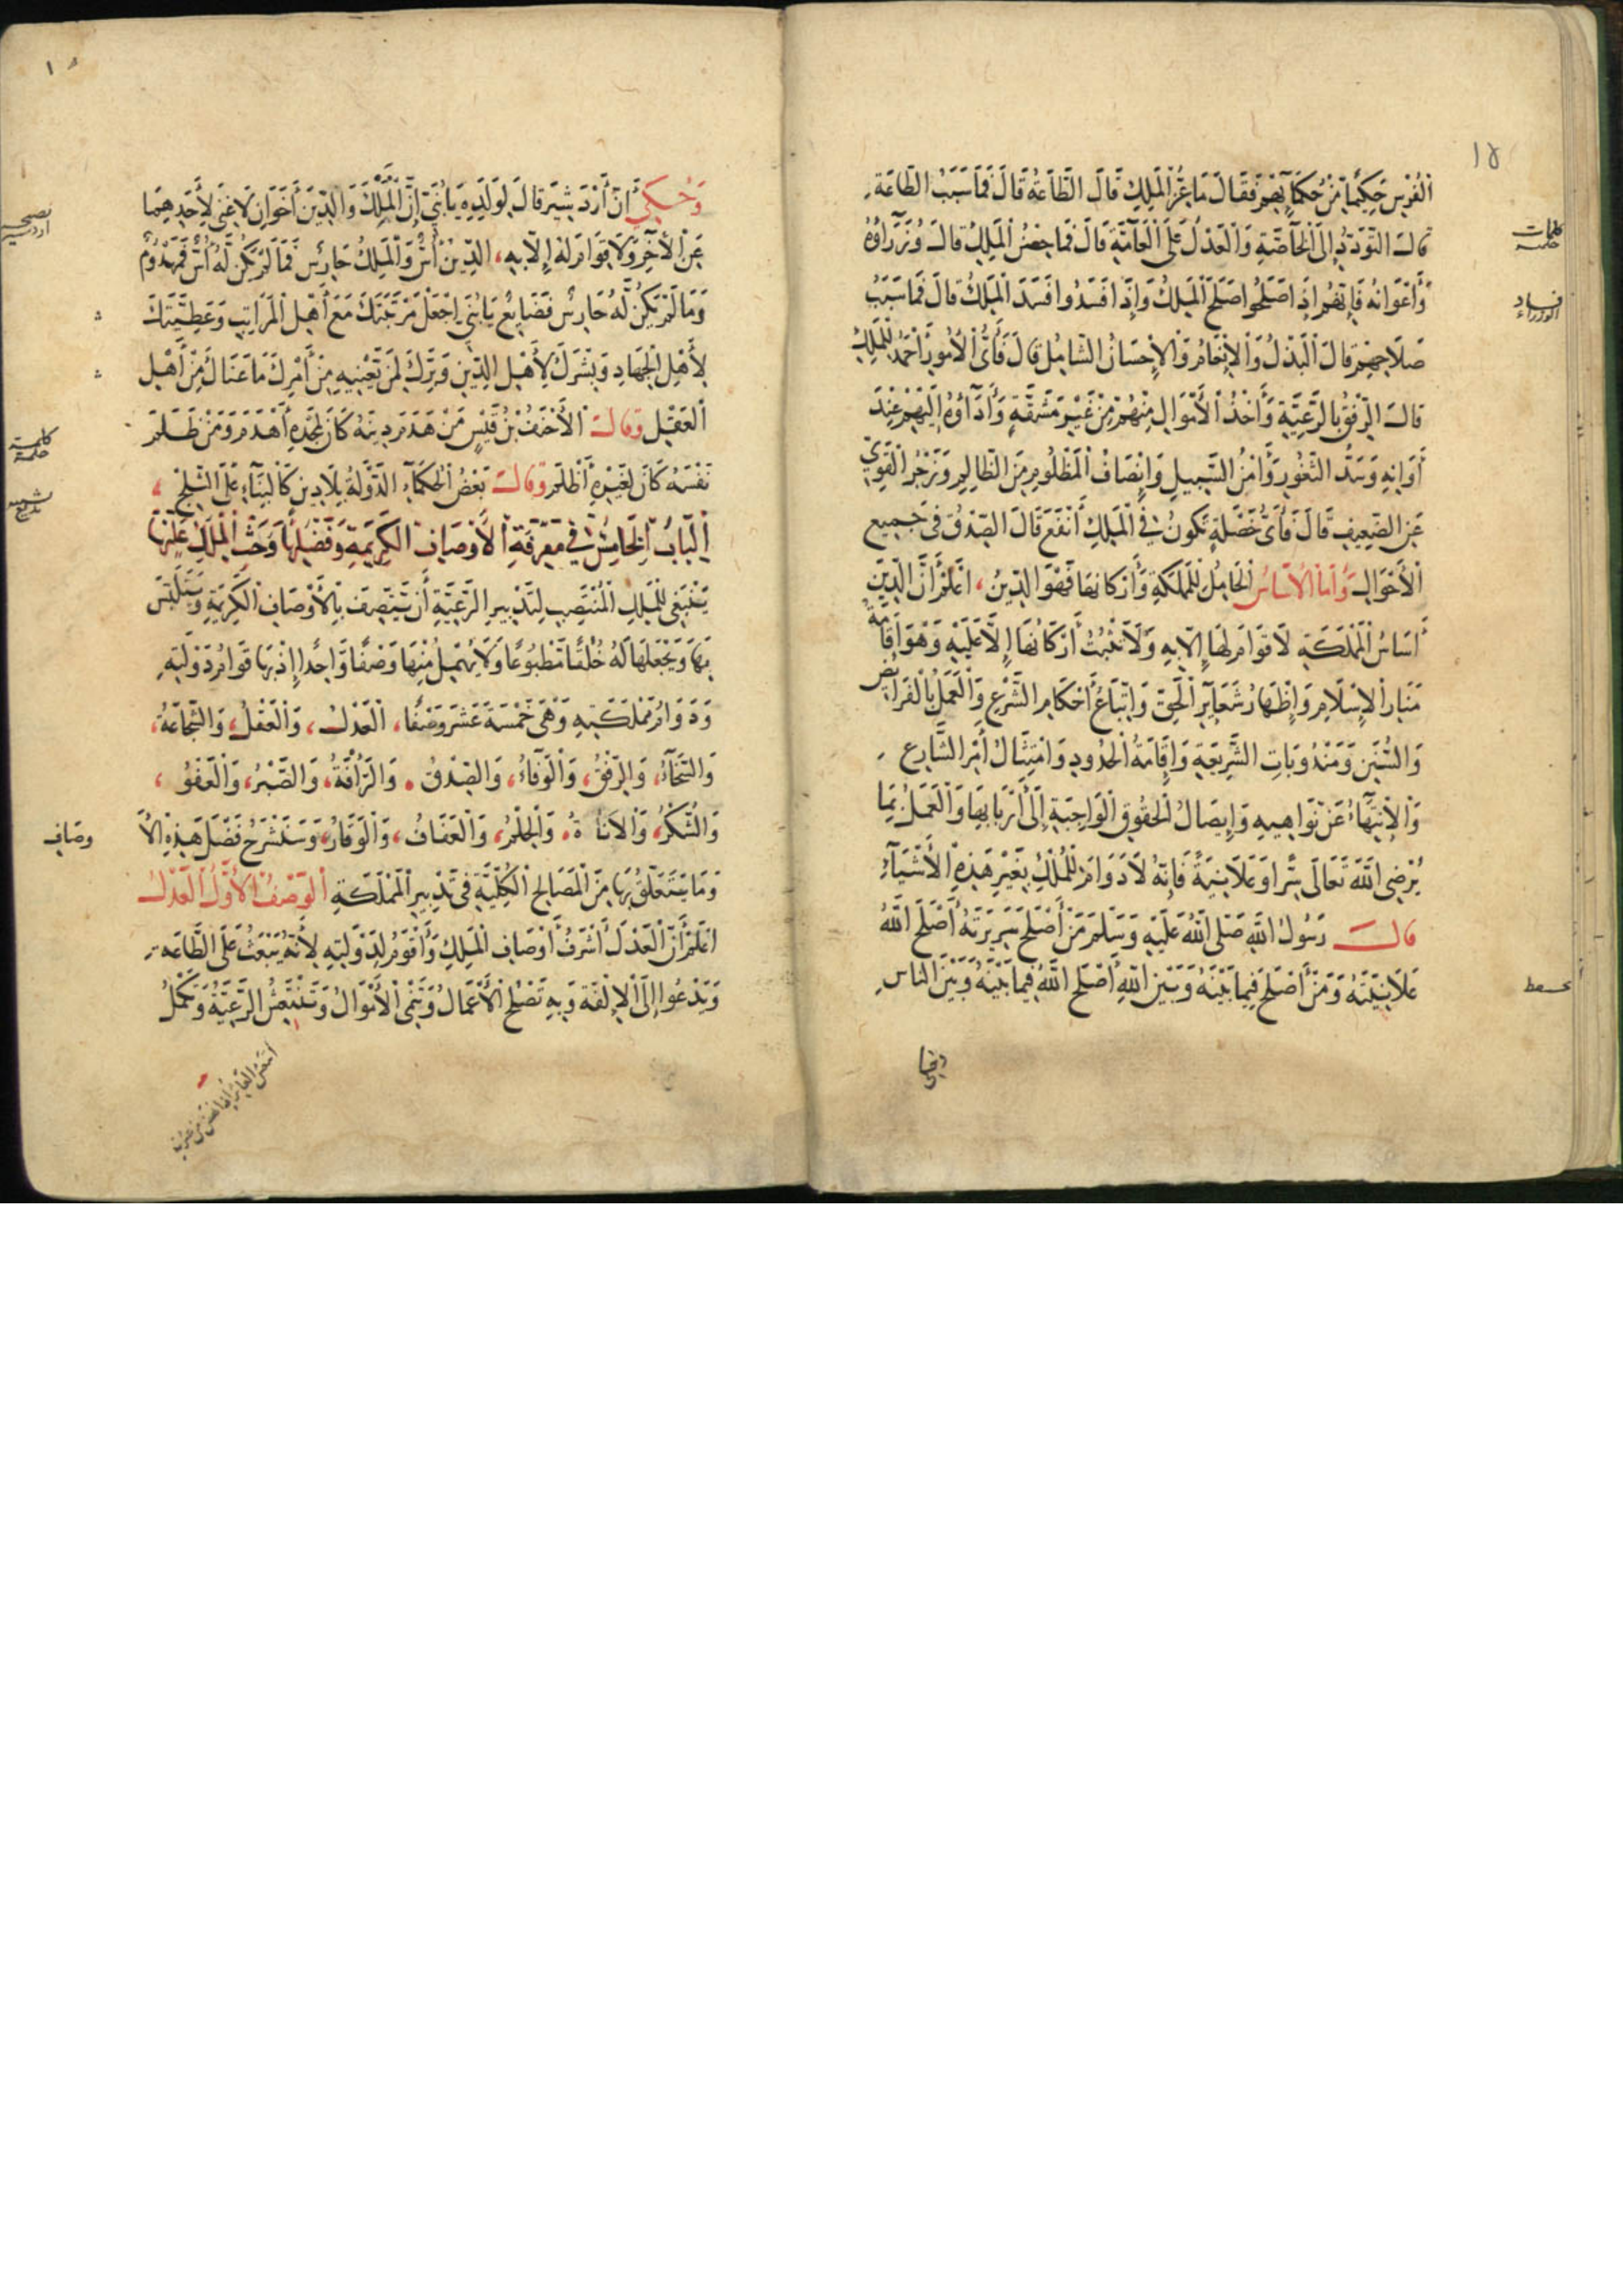 ١٥
الْفُرْسِ حَكِيمًا مِنْ حُكَمَائِهِمْ فَقَالَ مَا عِزُّ الْمَلِكِ قَالَ الطَّاعَةُ قَالَ فَمَا سَبَبُ الطَّاعَةِ
قَالَ التَّوَدُّدُ إِلَى الْخَاصَّةِ وَالْعَدْلُ عَلَى الْعَامَّةِ قَالَ فَمَا حِصْنُ الْمَلِكِ قَالَ وُزَرَاؤُهُ
وَأَعْوَانُهُ فَإِنَّهُمْ إِذَا صَلَحُوا صَلَحَ الْمَلِكُ وَإِذَا فَسَدُوا فَسَدَ الْمَلِكُ قَالَ فَمَا سَبَبُ
صَلَاحِهِمْ قَالَ الْبَذْلُ وَالْإِنْعَامُ وَالْإِحْسَانُ الشَّامِلُ قَالَ فَأَيُّ الْأُمُورِ أَحْمَدُ لِلْمَلِكِ
قَالَ الرِّفْقُ بِالرَّعِيَّةِ وَأَخْذُ الْأَمْوَالِ مِنْهُمْ مِنْ غَيْرِ مَشَقَّةٍ وَأَدَاؤُهُ إِلَيْهِمْ عِنْدَ
أَوَانِهِ وَسَدُّ الثُّغُورِ وَأَمْنُ السَّبِيلِ وَإِنْصَافُ الْمَظْلُومِ مِنَ الظَّالِمِ وَزَجْرُ الْقَوِيِّ
عَنِ الضَّعِيفِ قَالَ فَأَيُّ خَصْلَةٍ تَكُونُ فِي الْمَلِكِ أَنْفَعَ قَالَ الصِّدْقُ فِي جَمِيعِ
الْأَحْوَالِ وَأَمَّا الْأَسَاسُ الْحَامِلُ لِلْمَمْلَكَةِ وَأَرْكَانِهَا فَهُوَ الدِّينُ، اعْلَمْ أَنَّ الدِّينَ
أَسَاسُ الْمَمْلَكَةِ لَا قِوَامَ لَهَا إِلَّا بِهِ وَلَا تَثْبُتُ أَرْكَانُهَا إِلَّا عَلَيْهِ وَهُوَ إِقَامَةُ
مَنَارِ الْإِسْلَامِ وَإِظْهَارُ شَعَائِرِ الْحَقِّ وَاتِّبَاعُ أَحْكَامِ الشَّرْعِ وَالْعَمَلُ بِالْفَرَائِضِ
وَالسُّنَنِ وَمَنْدُوبَاتِ الشَّرِيعَةِ وَإِقَامَةُ الْحُدُودِ وَامْتِثَالُ أَمْرِ الشَّارِعِ
وَالْإِنْتِهَاءُ عَنْ نَوَاهِيهِ وَإِيصَالُ الْحُقُوقِ الْوَاجِبَةِ إِلَى أَرْبَابِهَا وَالْعَمَلُ بِمَا
يُرْضِي اللَّهَ تَعَالَى سِرًّا وَعَلَانِيَةً فَإِنَّهُ لَا دَوَامَ لِلْمُلْكِ بِغَيْرِ هَذِهِ الْأَشْيَاءِ
قَالَ رَسُولُ اللَّهِ صَلَّى اللَّهُ عَلَيْهِ وَسَلَّمَ مَنْ أَصْلَحَ سَرِيرَتَهُ أَصْلَحَ اللَّهُ
عَلَانِيَتَهُ وَمَنْ أَصْلَحَ فِيمَا بَيْنَهُ وَبَيْنَ اللَّهِ أَصْلَحَ اللَّهُ فِيمَا بَيْنَهُ وَبَيْنَ النَّاسِ
كلمات
حكمية
فساد
الوزراء
وَحُكِيَ أَنَّ أَرْدَشِيرَ قَالَ لِوَلَدِهِ يَا بُنَيَّ إِنَّ الْمُلْكَ وَالدِّينَ أَخَوَانِ لَا غِنَى لِأَحَدِهِمَا
عَنِ الْآخَرِ وَلَا قِوَامَ لَهُ إِلَّا بِهِ، الدِّينُ أُسٌّ وَالْمَلِكُ حَارِسٌ فَمَا لَمْ يَكُنْ لَهُ أُسٌّ فَمَهْدُومٌ
وَمَا لَمْ يَكُنْ لَهُ حَارِسٌ فَضَايِعٌ يَا بُنَيَّ اجْعَلْ مَرْتَبَتَكَ مَعَ أَهْلِ الْمَرَاتِبِ وَعَطِيَّتَكَ
لِأَهْلِ الْجِهَادِ وَبِشْرَكَ لِأَهْلِ الدِّينِ وَبِرَّكَ لِمَنْ تَعْنِيهِ مِنْ أَمْرِكَ مَا عَنَاكَ مِنْ أَهْلِ
الْعَقْلِ وَقَالَ الْأَحْنَفُ بْنُ قَيْسٍ مَنْ هَدَمَ دِينَهُ كَانَ لِمَجْدِهِ أَهْدَمَ وَمَنْ ظَلَمَ
نَفْسَهُ كَانَ لِغَيْرِهِ أَظْلَمَ وَقَالَ بَعْضُ الْحُكَمَاءِ الدَّوْلَةُ بِلَا دِينٍ كَالْبِنَاءِ عَلَى الثَّلْجِ،
الْبَابُ الْخَامِسُ فِي مَعْرِفَةِ الْأَوْصَافِ الْكَرِيمَةِ وَفَضْلِهَا وَحَثِّ الْمَلِكِ عَلَيْهَا
يَنْبَغِي لِلْمَلِكِ الْمُنْتَصِبِ لِتَدْبِيرِ الرَّعِيَّةِ أَنْ يَتَّصِفَ بِالْأَوْصَافِ الْكَرِيمَةِ وَيَتَلَبَّسَ
بِهَا وَيَجْعَلَهَا لَهُ خُلُقًا مَطْبُوعًا وَلَا يُهْمِلُ مِنْهَا وَصْفًا وَاحِدًا إِذْ بِهَا قِوَامُ دَوْلَتِهِ
وَدَوَامُ مَمْلَكَتِهِ وَهِيَ خَمْسَةَ عَشَرَ وَصْفًا، الْعَدْلُ، وَالْعَقْلُ، وَالشَّجَاعَةُ،
وَالسَّخَاءُ، وَالرِّفْقُ، وَالْوَفَاءُ، وَالصِّدْقُ، وَالرَّأْفَةُ، وَالصَّبْرُ، وَالْعَفْوُ،
وَالشُّكْرُ، وَالْأَنَاةُ، وَالْحِلْمُ، وَالْعَفَافُ، وَالْوَقَارُ، وَسَنَشْرَحُ فَضْلَ هَذِهِ الْأَوْصَافِ
وَمَا يَتَعَلَّقُ بِهَا مِنَ الْمَصَالِحِ الْكُلِّيَّةِ فِي تَدْبِيرِ الْمَمْلَكَةِ الْوَصْفُ الْأَوَّلُ الْعَدْلُ
اعْلَمْ أَنَّ الْعَدْلَ أَشْرَفُ أَوْصَافِ الْمَلِكِ وَأَقْوَمُ لِدَوْلَتِهِ لِأَنَّهُ يَبْعَثُ عَلَى الطَّاعَةِ
وَيَدْعُوا إِلَى الْإِلْفَةِ وَبِهِ تَصْلُحُ الْأَعْمَالُ وَتَنْمَى الْأَمْوَالُ وَتَنْتَعِشُ الرَّعِيَّةُ وَتَكْمُلُ
نصيحة
اردشير
كلمة
حكمية